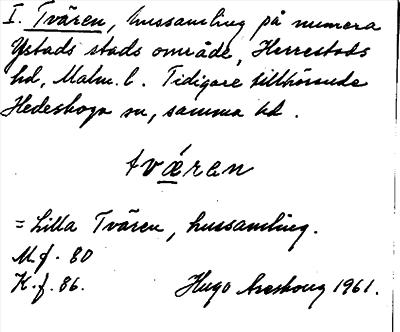 I. Tvären, hussamling på numera
Ystads stads område, Herrestads
hd, Malm. l. Tidigare tillhörande
Hedeskoga sn, samma hd.
tvǽren
= Lilla Tvären, hussamling.
M.f. 80
K.f. 86. Hugo Areskoug 1961.